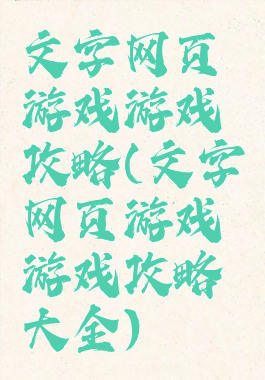 文字网页
游戏游戏
攻略(文字
网页游戏
游戏攻略
大全)